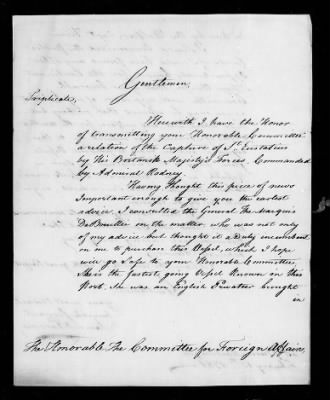 Gentlemen,
Triplicate,
Herewith I have the Honor
of transmitting your Honorable Committee
a relation of the Capture of St. Eustatius
by His Britanic Majesty's Forces, Commanded
by Admiral Rodney
Having thought this piece of news
Important enough to give you the earliest
advice I consulted the General The Marquis
DeBouillee on the matter who was not only
of my advice but thought it a Duty incumbent
on me to purchase this Vessel, which I hope
will go Safe to your Honorable Committee,
She is the fastest going Vessel Known in this
Port. She was an English Privateer brought
in
The Honorable The Committee for Foreign Affairs,